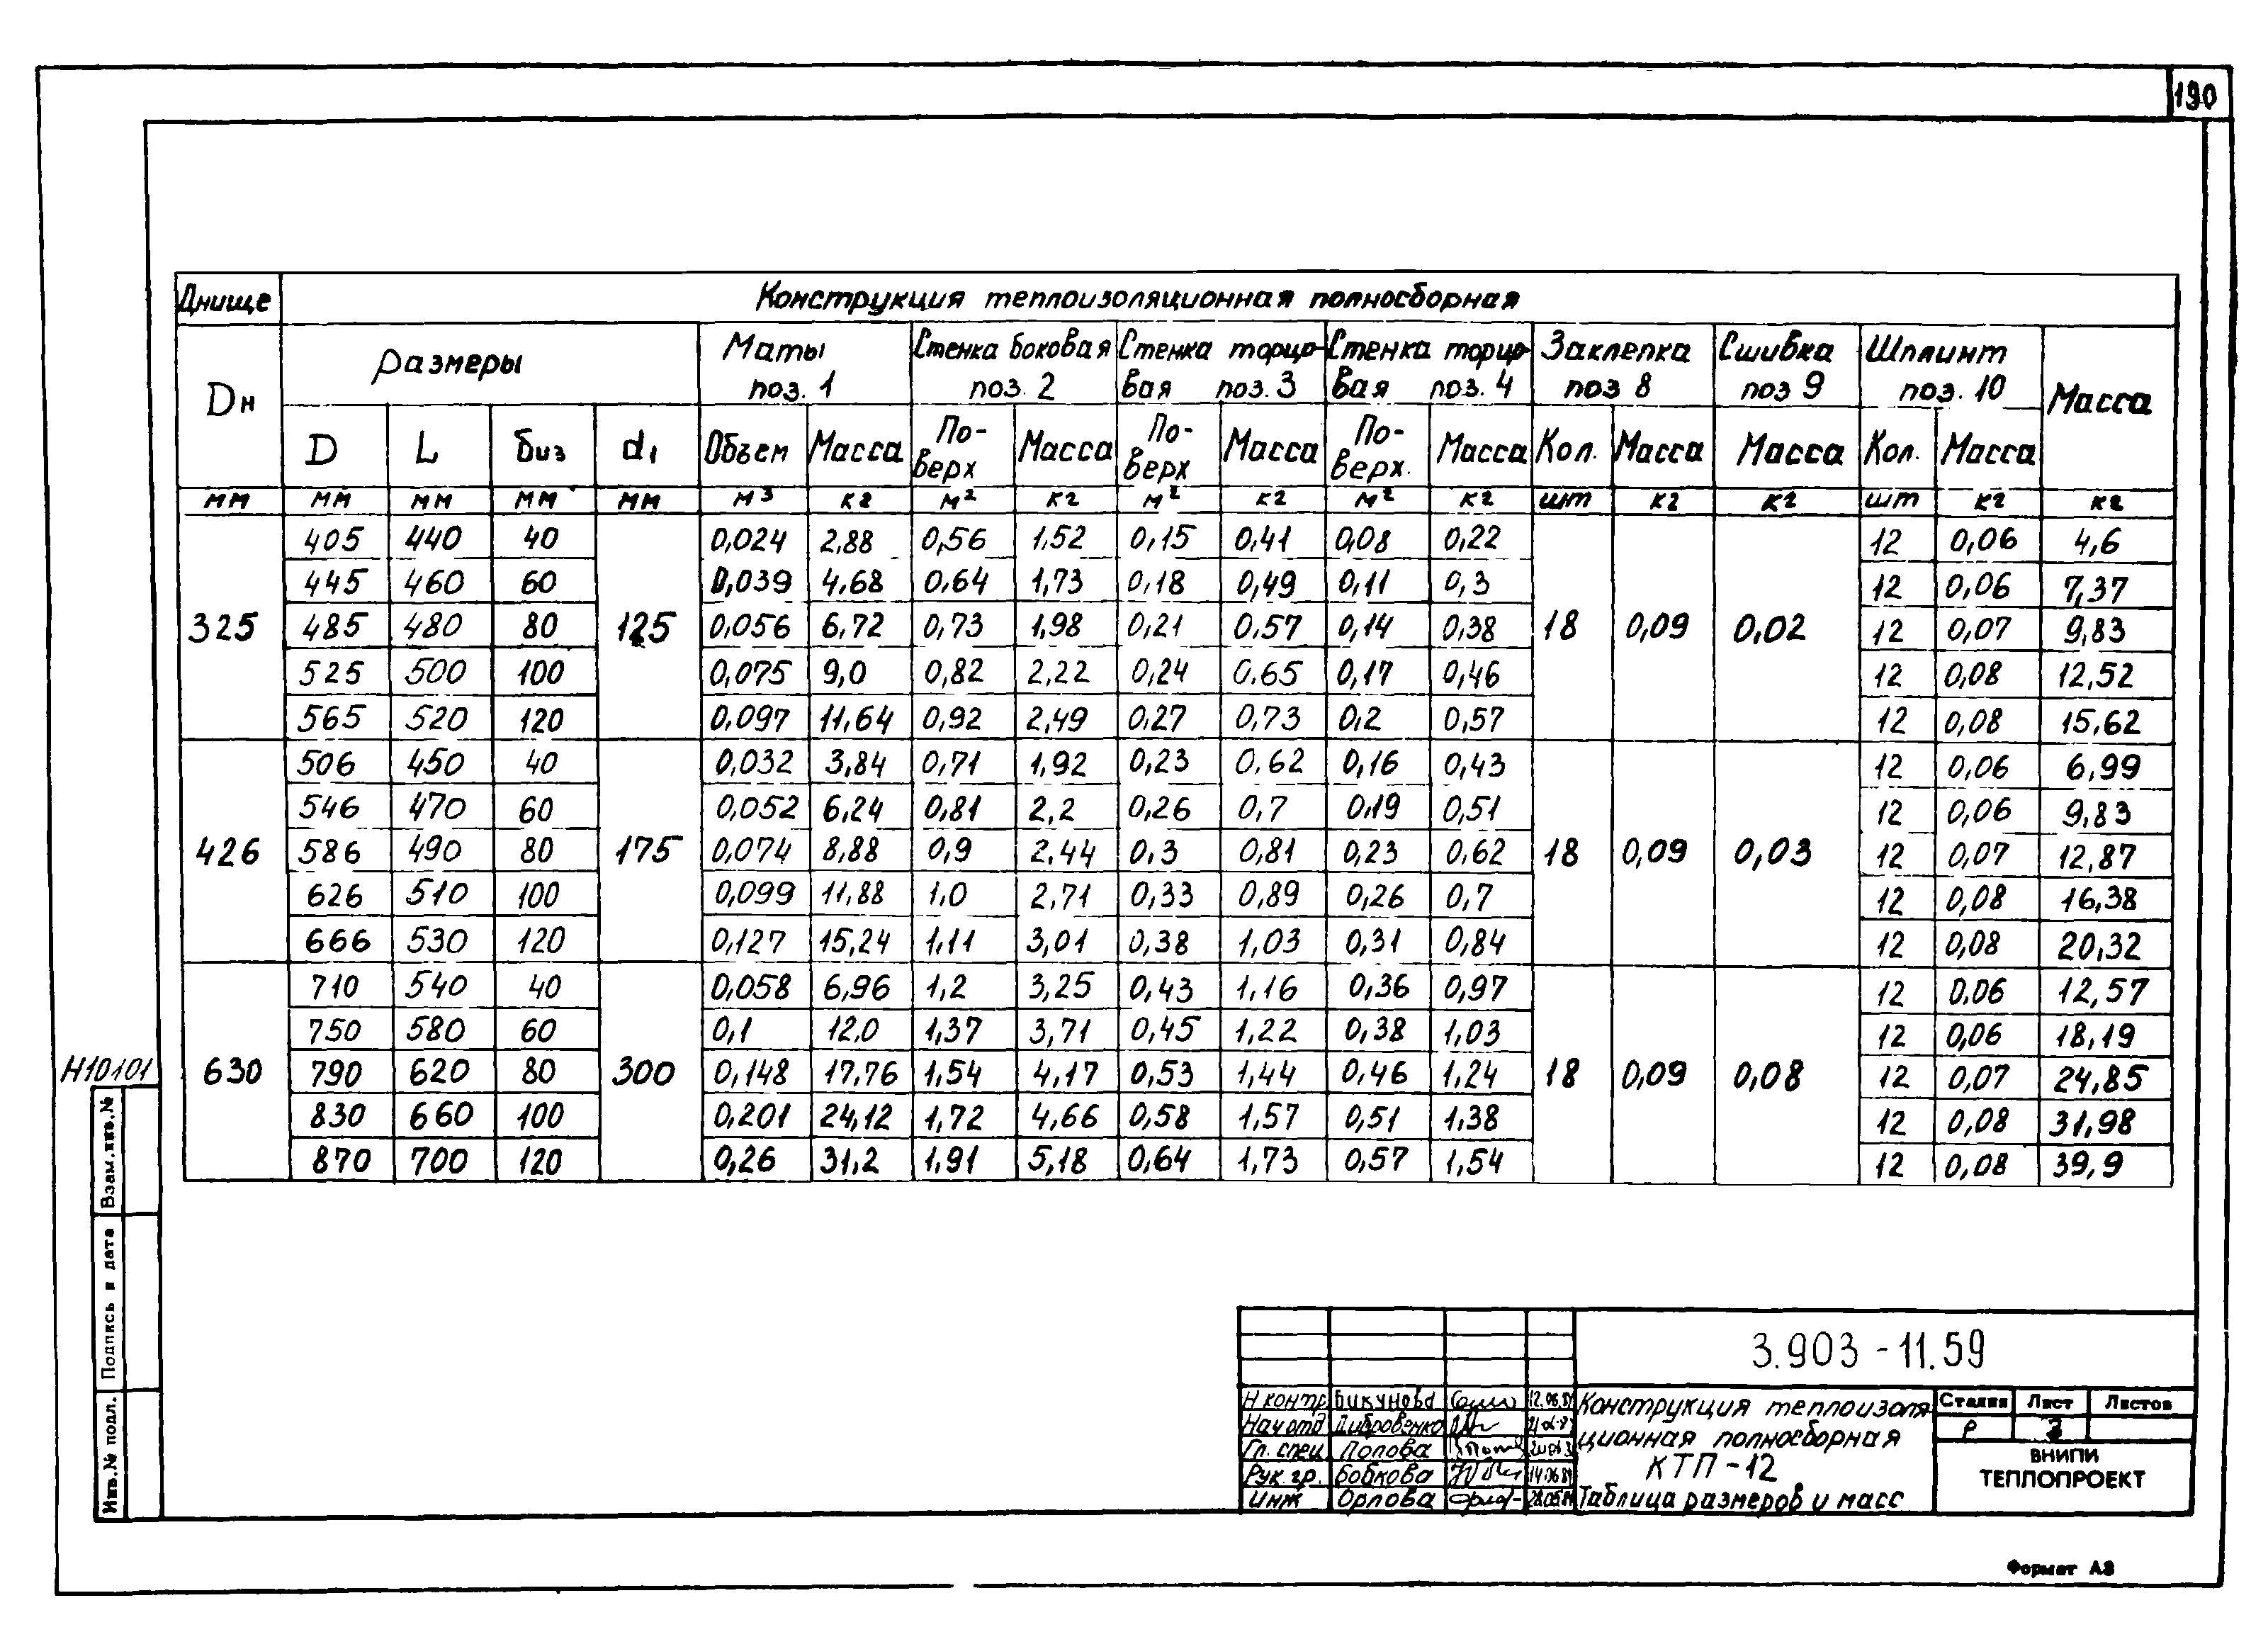 190
Днище Конструкция теплоизоляционная полносборная
Dн Размеры Маты поз. 1 Стенка боковая поз. 2 Стенка торцовая поз. 3 Стенка торцовая поз. 4 Заклепка поз 8 Сшивка поз 9 Шплинт поз. 10 Масса
D L δиз d1 Объем Масса По-верх Масса По-верх Масса По-верх. Масса Кол. Масса Масса Кол. Масса
мм мм мм мм мм м³ кг м² кг м² кг м² кг шт кг кг шт кг кг
405 440 40 0,024 2,88 0,56 1,52 0,15 0,41 0,08 0,22 12 0,06 4,6
445 460 60 0,039 4,68 0,64 1,73 0,18 0,49 0,11 0,3 12 0,06 7,37
325 485 480 80 125 0,056 6,72 0,73 1,98 0,21 0,57 0,14 0,38 18 0,09 0,02 12 0,07 9,83
525 500 100 0,075 9,0 0,82 2,22 0,24 0,65 0,17 0,46 12 0,08 12,52
565 520 120 0,097 11,64 0,92 2,49 0,27 0,73 0,2 0,57 12 0,08 15,62
506 450 40 0,032 3,84 0,71 1,92 0,23 0,62 0,16 0,43 12 0,06 6,99
546 470 60 0,052 6,24 0,81 2,2 0,26 0,7 0,19 0,51 12 0,06 9,83
426 586 490 80 175 0,074 8,88 0,9 2,44 0,3 0,81 0,23 0,62 18 0,09 0,03 12 0,07 12,87
626 510 100 0,099 11,88 1,0 2,71 0,33 0,89 0,26 0,7 12 0,08 16,38
666 530 120 0,127 15,24 1,11 3,01 0,38 1,03 0,31 0,84 12 0,08 20,32
710 540 40 0,058 6,96 1,2 3,25 0,43 1,16 0,36 0,97 12 0,06 12,57
750 580 60 0,1 12,0 1,37 3,71 0,45 1,22 0,38 1,03 12 0,06 18,19
630 790 620 80 300 0,148 17,76 1,54 4,17 0,53 1,44 0,46 1,24 18 0,09 0,08 12 0,07 24,85
830 660 100 0,201 24,12 1,72 4,66 0,58 1,57 0,51 1,38 12 0,08 31,98
870 700 120 0,26 31,2 1,91 5,18 0,64 1,73 0,57 1,54 12 0,08 39,9
Н10101
Взам.инв.№
Подпись и дата
Инв.№ подл.
3.903-11.59
Н контр Бикунова 12.06.84
Нач отд Дибровенко
Гл. спец Попова
Рук. гр. Бобкова 14.06.84
Инж Орлова
Конструкция теплоизоля
ционная полносборная
КТП-12
Таблица размеров и масс
Стадия Лист Листов
Р 3
ВНИПИ
ТЕПЛОПРОЕКТ
Формат А3